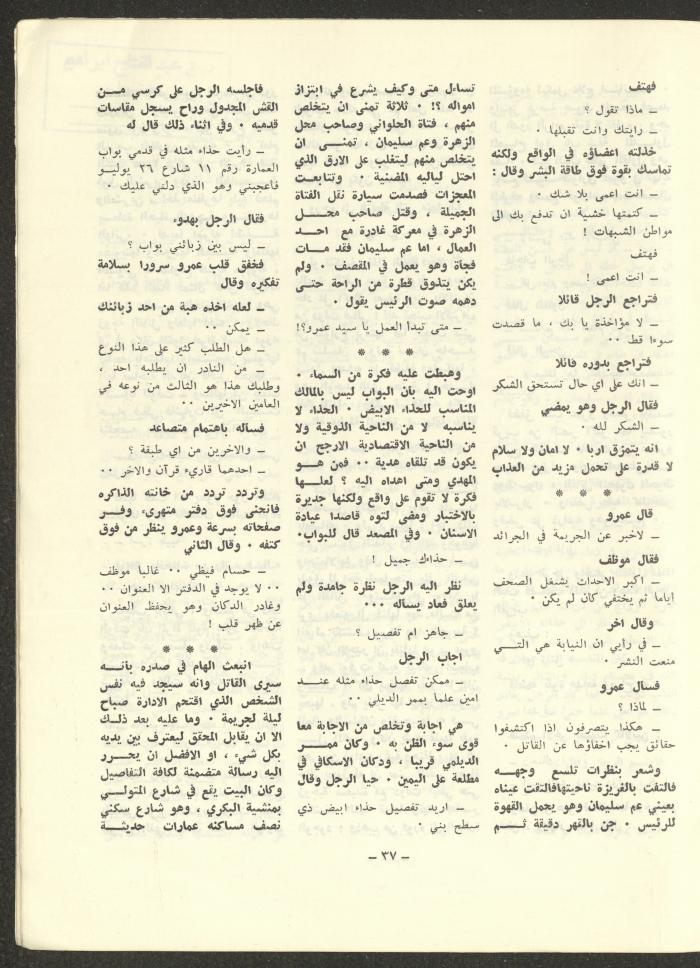 فهتف
ـ ماذا تقول ؟
ـ رايتك وانت تقبلها ·
خذلته اعضاؤه في الواقع ولكنه
تماسك بقوة فوق طاقة البشر وقال :
ـ انت اعمى بلا شك ·
ـ كتمتها خشية ان تدفع بك الى
مواطن الشبهات !
فهتف
ـ انت اعمى !
فتراجع الرجل قائلا
ـ لا مؤاخذة يا بك ، ما قصدت
سوءا قط ··
فتراجع بدوره قائلا
ـ انك على اي حال تستحق الشكر
فقال الرجل وهو يمضي
ـ الشكر لله ·
انه يتمزق اربا · لا امان ولا سلام
لا قدرة على تحمل مزيد من العذاب
* * *
قال عمرو
ـ لاخبر عن الجريمة في الجرائد
فقال موظف
ـ اكبر الاحداث يشغل الصحف
اياما ثم يختفي كان لم يكن ·
وقال اخر
ـ في رأيي ان النيابة هي التــي
منعت النشر ·
فسال عمرو
ـ لماذا ؟
ـ هكذا يتصرفون اذا اكتشفوا
حقائق يجب اخفاؤها عن القاتل ·
وشعر بنظرات تلسع وجهــه
فالتفت بالغريزة ناحيتهافالتقت عيناه
بعيني عم سليمان وهو يحمل القهوة
للرئيس · جن بالقهر دقيقة ثــم
تساءل متى وكيف يشرع في ابتزاز
امواله ؟! · ثلاثة تمنى ان يتخلص
منهم ، فتاة الحلواني وصاحب محل
الزهرة وعم سليمان ، تمنــى ان
يتخلص منهم ليتغلب على الارق الذي
احتل لياليه المضنية · وتتابعــت
المعجزات فصدمت سيارة نقل الفتاة
الجميلة ، وقتل صاحب محــل
الزهرة في معركة غادرة مع احــد
العمال ، اما عم سليمان فقد مــات
فجأة وهو يعمل في المقصف · ولم
يكن يتذوق قطرة من الراحة حتــى
دهمه صوت الرئيس يقول ·
ـ متى تبدأ العمل يا سيد عمرو؟!
* * *
وهبطت عليه فكرة من السماء ·
اوحت اليه بأن البواب ليس بالمالك
المناسب للحذاء الابيض · الحذاء لا
يناسبه لا من الناحية الذوقية ولا
من الناحية الاقتصادية الارجح ان
يكون قد تلقاه هدية ·· فمن هــو
المهدي ومتى اهداه اليه ؟ لعلــها
فكرة لا تقوم على واقع ولكنها جديرة
بالاختبار ومضى لتوه قاصدا عيادة
الاسنان · وفي المصعد قال للبواب·
ـ حذاءك جميل !
نظر اليه الرجل نظرة جامدة ولم
يعلق فعاد يسأله ···
ـ جاهز ام تفصيل ؟
اجاب الرجل
ـ ممكن تفصل حذاء مثله عنــد
امين علما بممر الديلي ··
هي اجابة وتخلص من الاجابة معا
قوى سوء الظن به · وكان ممــر
الديلمي قريبا ، ودكان الاسكافي في
مطلعة على اليمين · حيا الرجل وقال
ـ اريد تفصيل حذاء ابيض ذي
سطح بني ·
فاجلسه الرجل على كرسي مــن
القش المجدول وراح يسجل مقاسات
قدميه · وفي اثناء ذلك قال له
ـ رأيت حذاء مثله في قدمي بواب
العمارة رقم ١١ شارع ٢٦ يوليــو
فاعجبني وهو الذي دلني عليك ·
فقال الرجل بهدوء
ـ ليس بين زبائني بواب ؟
فخفق قلب عمرو سرورا بسلامة
تفكيره وقال
ـ لعله اخذه هبة من احد زبائنك
ـ يمكن ··
ـ هل الطلب كثير على هذا النوع
ـ من النادر ان يطلبه احد ،
وطلبك هذا هو الثالث من نوعه في
العامين الاخيرين ··
فسأله باهتمام متصاعد
ـ والاخرين من اي طبقة ؟
ـ احدهما قاريء قرآن والاخر ··
وتردد تردد من خانته الذاكره
فانحنى فوق دفتر متهرىء وفــر
صفحاته بسرعة وعمرو ينظر من فوق
كتفه · وقال الثاني
ـ حسام فيظي ·· غالبا موظف
·· لا يوجد في الدفتر الا العنوان ··
وغادر الدكان وهو يحفظ العنوان
عن ظهر قلب !
* * *
انبعث الهام في صدره بأنــه
سيرى القاتل وانه سيجد فيه نفس
الشخص الذي اقتحم الادارة صباح
ليلة لجريمة · وما عليه بعد ذلــك
الا ان يقابل المحقق ليعترف بين يديه
بكل شيء ، او الافضل ان يحــرر
اليه رسالة متضمنة لكافة التفاصيل
وكان البيت يقع في شارع المتولــي
بمنشية البكري ، وهو شارع سكني
نصف مساكنه عمارات حديثــة
ـ ٣٧ ـ